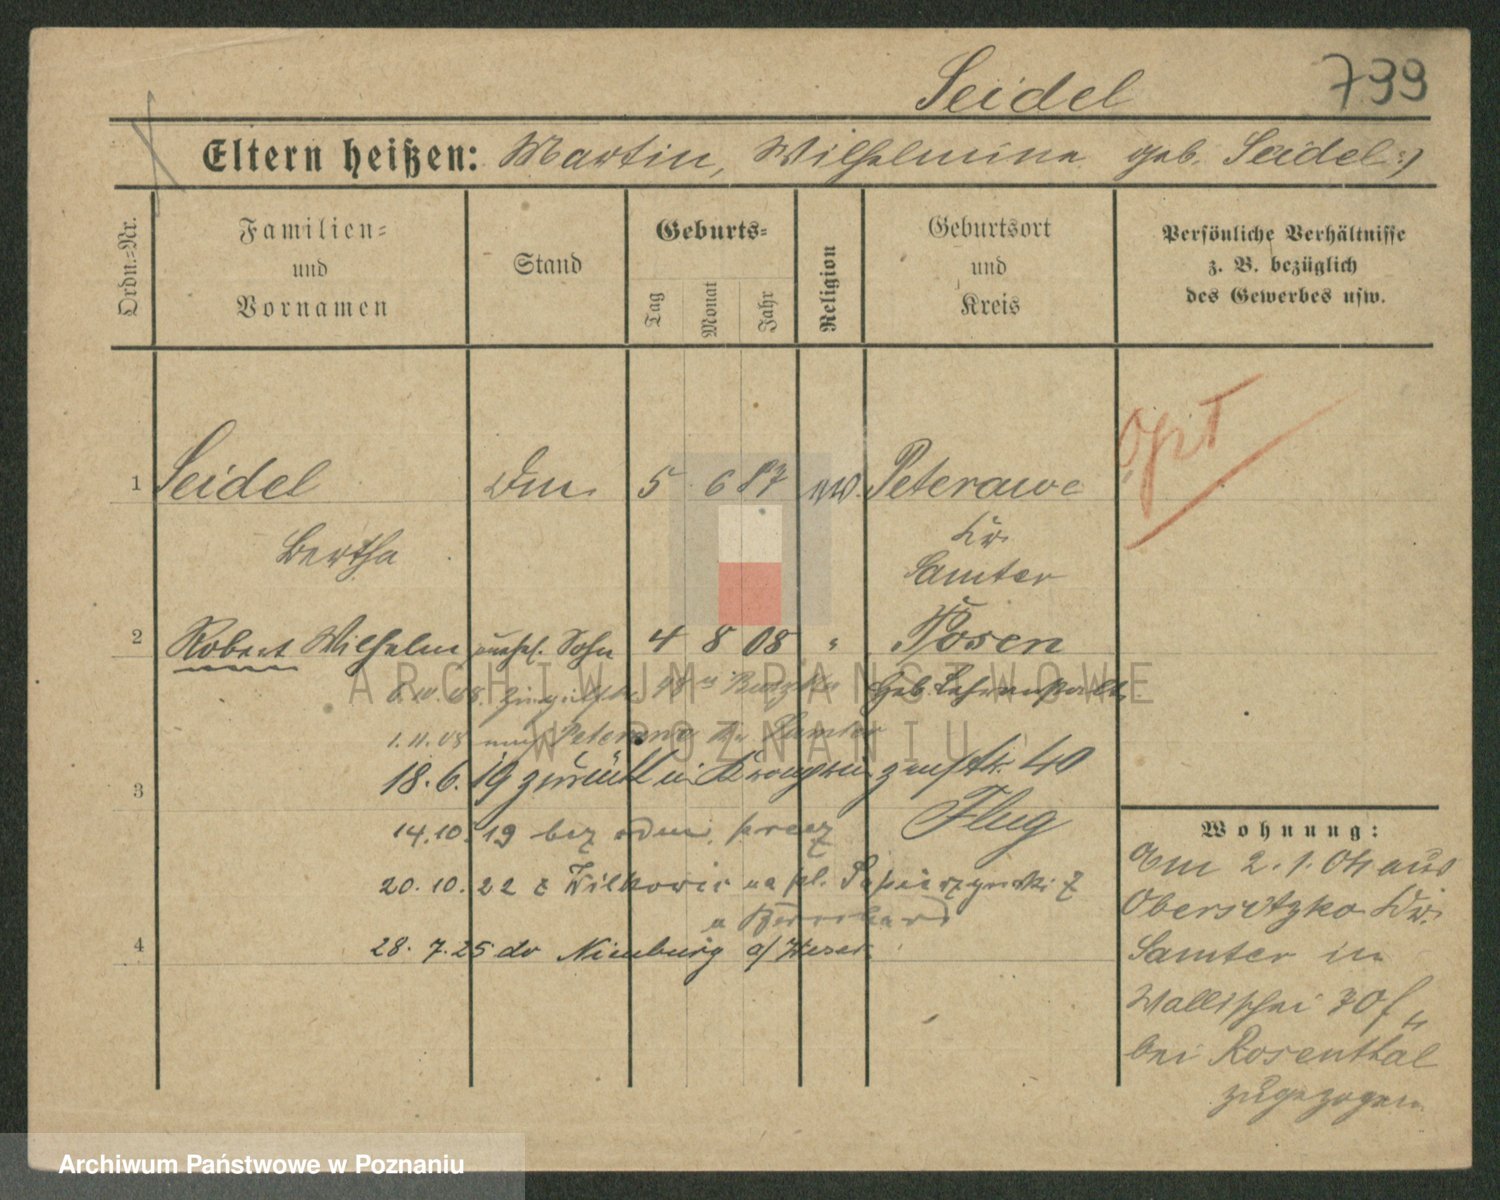 Seidel 799
Eltern heißen: Martin, Wilhelmine geb. Seidel :)
Ordn.-Nr.
Familien-
und
Vornamen
Stand
Geburts-
Tag
Monat
Jahr
Religion
Geburtsort
und
Kreis
Persönliche Verhältnisse
z. B. bezüglich
des Gewerbes usw.
Opt
1 Seidel 5 6 87 ev. Peterawe
Bertha
Kr.
Samter
2 Robert Wilhelm unehel. Sohn 4 8 08 " Posen
Heb. Lehranstalt
1.11.08 nach Peterawe Kr. Samter
3
18.6.19 zurück in Kronprinzenstr. 40
14.10.19 bez adm. przez Flug
20.10.22 z Wilkowic na pl. Sapieżyński 7
u Bernhard
4
28.7.25 do Nienburg a/Weser
Wohnung:
Am 2.1.04 aus
Obersitzko Kr.
Samter in
Wallischei 70 f
bei Rosenthal
zugezogen
ARCHIWUM PAŃSTWOWE
W POZNANIU
Archiwum Państwowe w Poznaniu